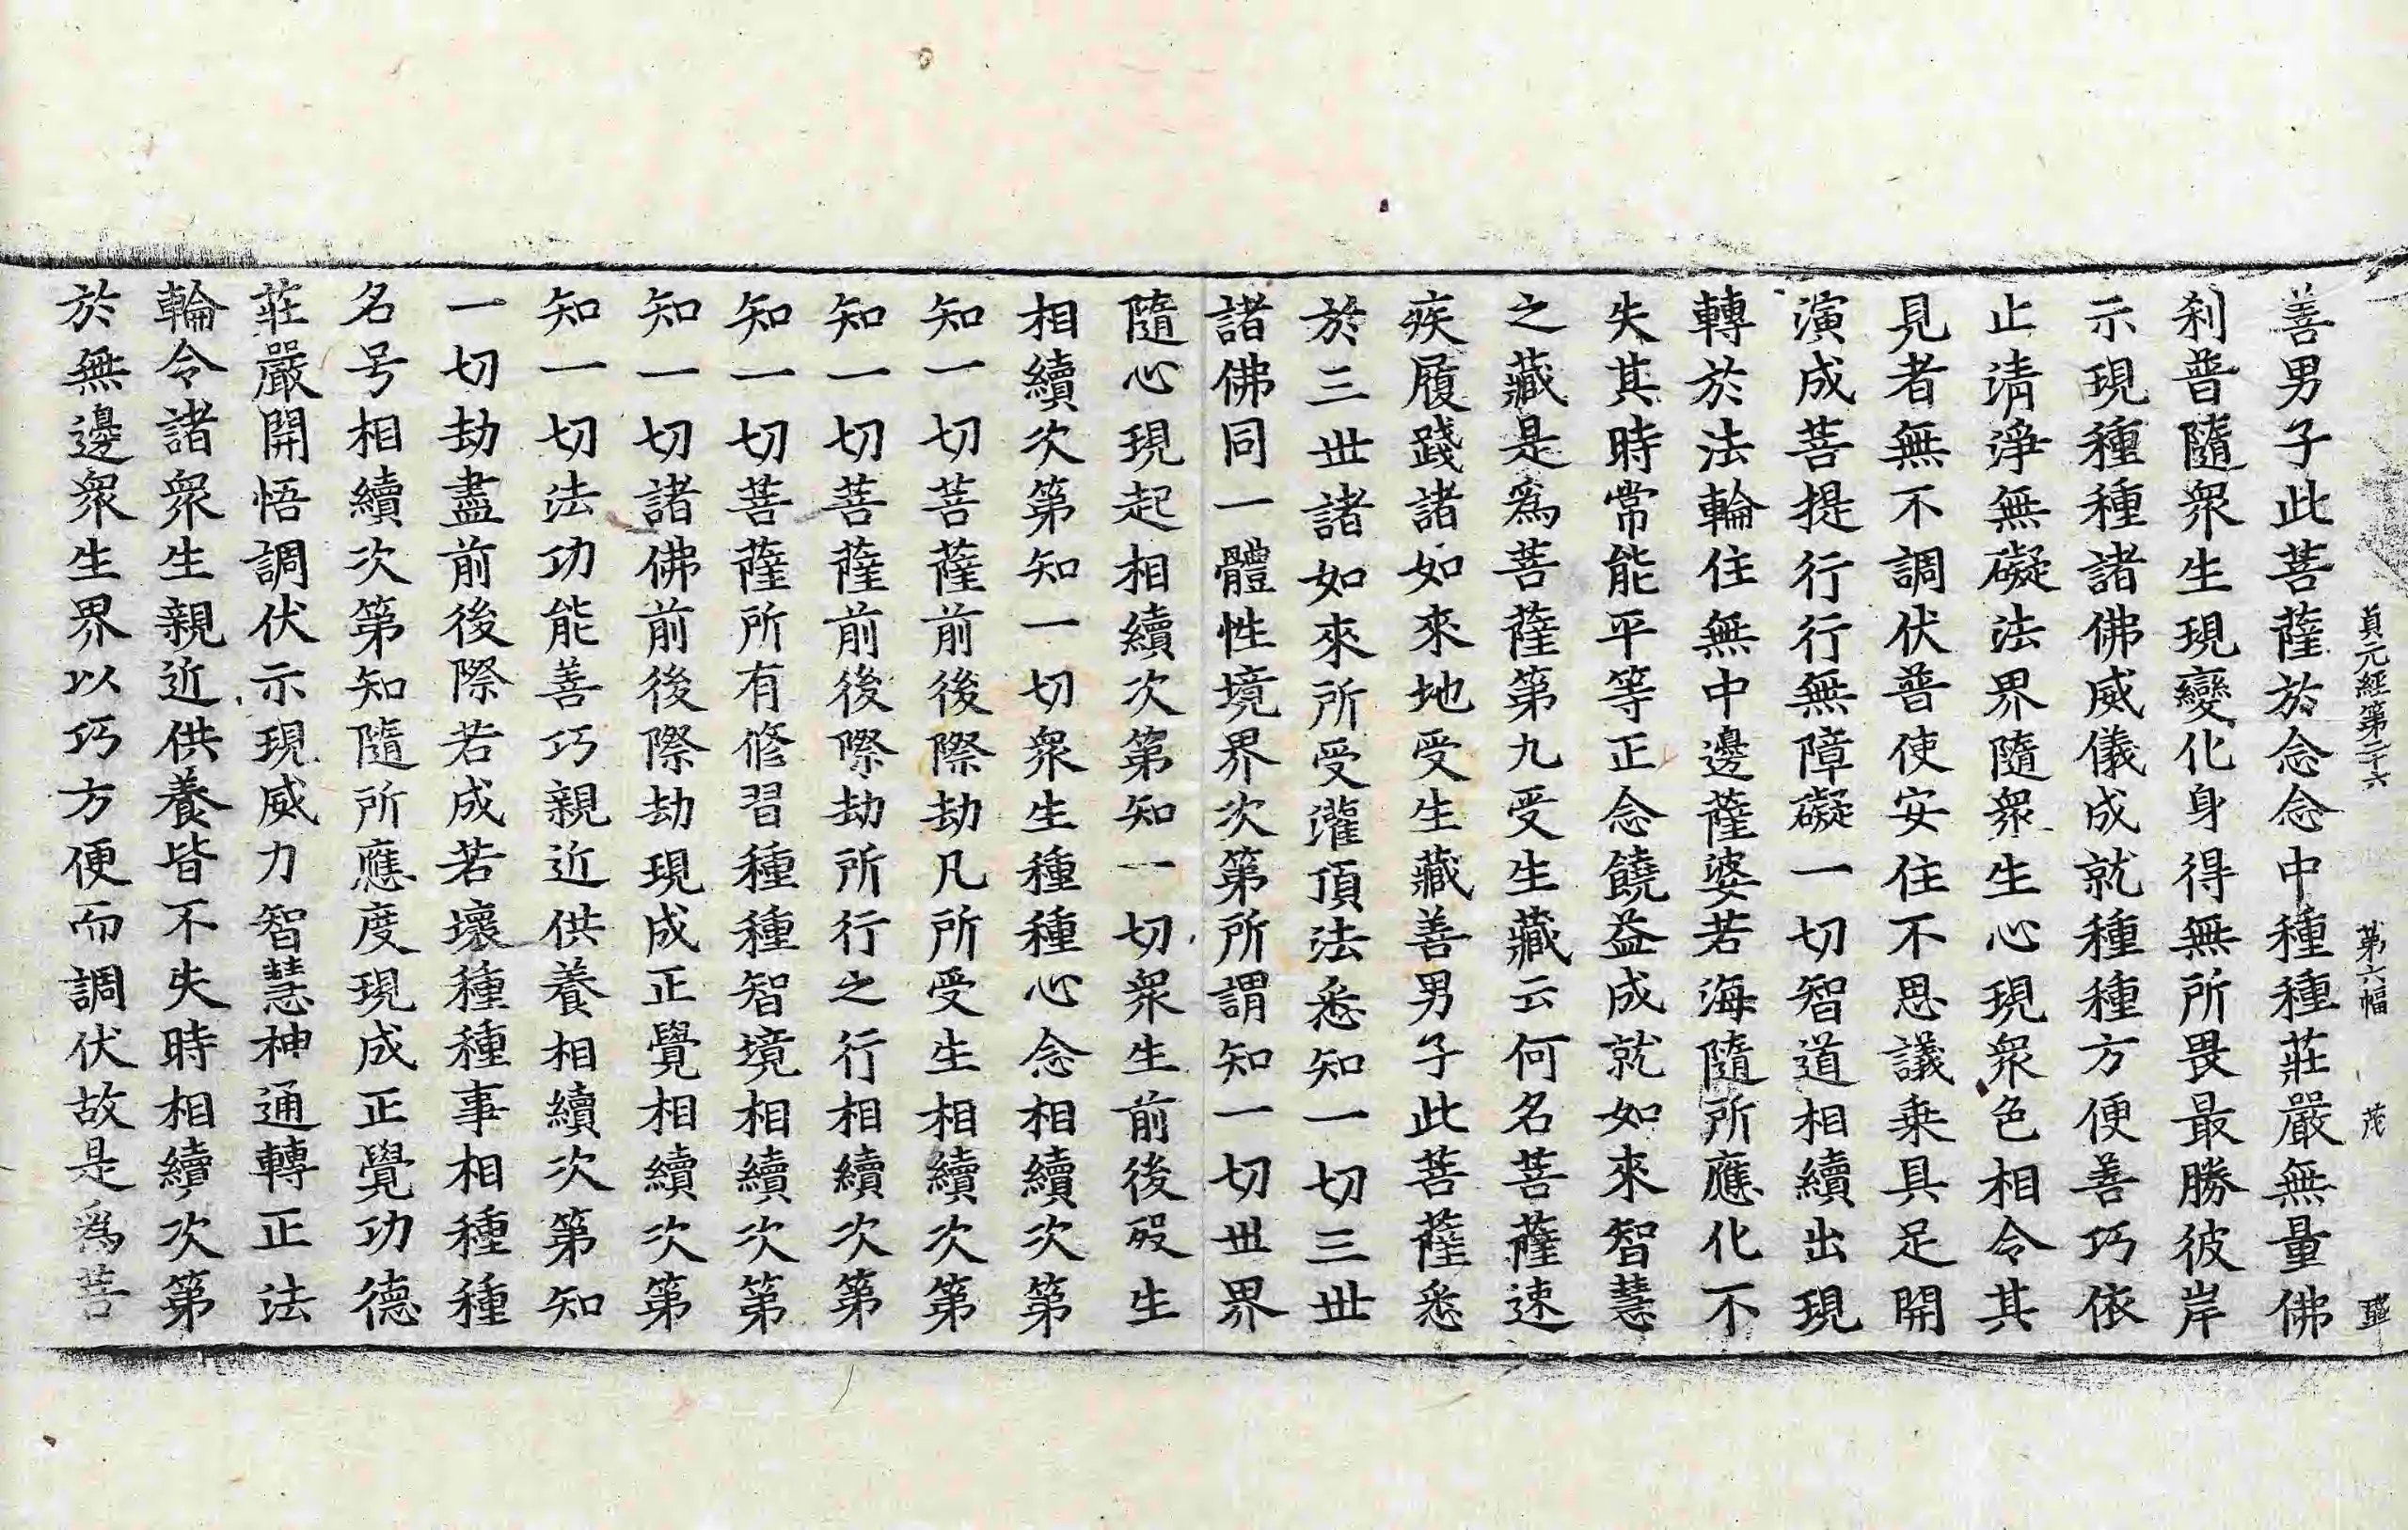 貞元經第二十六 第六幅 茂
善男子此菩薩於念念中種種莊嚴無量佛
刹普隨衆生現變化身得無所畏最勝彼岸
示現種種諸佛威儀成就種種方便善巧依
止清淨無礙法界隨衆生心現衆色相令其
見者無不調伏普使安住不思議乘具足開
演成菩提行行無障礙一切智道相續出現
轉於法輪住無中邊薩婆若海隨所應化不
失其時常能平等正念饒益成就如來智慧
之藏是爲菩薩第九受生藏云何名菩薩速
疾履踐諸如來地受生藏善男子此菩薩悉
於三世諸如來所受灌頂法悉知一切三世
諸佛同一體性境界次第所謂知一切世界
隨心現起相續次第知一切衆生前後歿生
相續次第知一切衆生種種心念相續次第
知一切菩薩前後際劫凡所受生相續次第
知一切菩薩前後際劫所行之行相續次第
知一切菩薩所有修習種種智境相續次第
知一切諸佛前後際劫現成正覺相續次第
知一切法功能善巧親近供養相續次第知
一切劫盡前後際若成若壞種種事相種種
名号相續次第知隨所應度現成正覺功德
莊嚴開悟調伏示現威力智慧神通轉正法
輪令諸衆生親近供養皆不失時相續次第
於無邊衆生界以巧方便而調伏故是爲菩